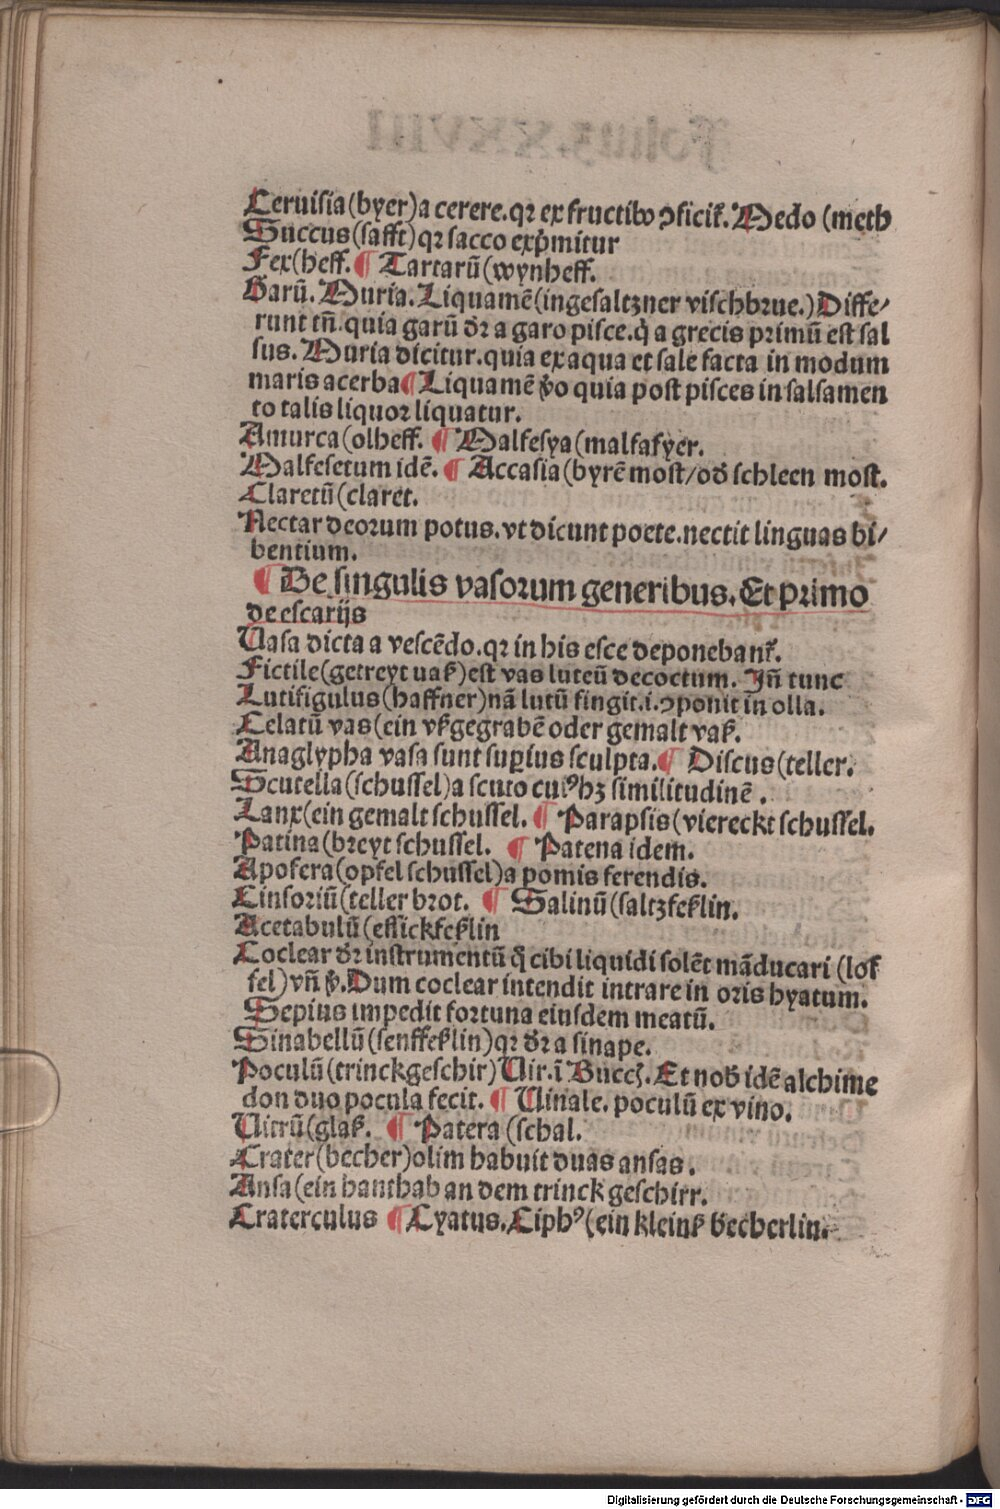 Ceruiſia (byer) a cerere. qꝛ ex fructibꝰ ↄficiť. Medo (meth
Succus (ſafft) qꝛ ſacco exp̃mitur
Fex (heff. ¶ Tartarũ (wynheff.
Garũ. Muria. Liquamẽ (ingeſaltzner viſchbꝛue.) Diffe/
runt tñ. quia garũ dꝛ̃ a garo piſce. q̃ a grecis pꝛimũ eſt ſal
ſus. Muria dicitur. quia ex aqua et ſale facta in modum
maris acerba ¶ Liquamẽ ṽo quia poſt piſces in ſalſamen
to talis liquoꝛ liquatur.
Amurca (olheff. ¶ Malfeſya (malfaſyer.
Malfeſetum idẽ. ¶ Accaſia (byrẽ moſt / od̃ ſchleen moſt.
Claretũ (claret.
Nectar deorum potus. vt dicunt poete. nectit linguas bi/
bentium.
¶ De ſingulis vaſoꝛum generibus. Et pꝛimo
de eſcarijs
Vaſa dicta a veſcẽdo. qꝛ in his eſce deponebanť.
Fictile (getreyt uaß) eſt vas luteũ decoctum. Jñ tunc
Lutifigulus (haffner) nã lutũ fingit .i. ↄponit in olla.
Celatũ vas (ein vßgegrabẽ oder gemalt vaß.
Anaglypha vaſa sunt ſuꝑius ſculpta. ¶ Diſcus (teller.
Scutella (ſchuſſel) a ſcuto cuiꝰ hꝫ ſimilitudinẽ.
Lanx (ein gemalt ſchuſſel. ¶ Parapſis (viereckt ſchuſſel.
Patina (bꝛeyt ſchuſſel. ¶ Patena idem.
Apofera (opfel ſchuſſel) a pomis ferendis.
Cinſoriũ (teller bꝛot. ¶ Salinũ (ſaltzfeßlin.
Acetabulũ (eſſickfeßlin
Coclear dꝛ̃ inſtrumentũ q̃ cibi liquidi ſolẽt mãducari (lof
fel) vñ ṽ. Dum coclear intendit intrare in oris hyatum.
Sepius impedit foꝛtuna eiuſdem meatũ.
Sinabellũ (ſenffeßlin) qꝛ dꝛ̃ a ſinape.
Poculũ (trinckgeſchir) Vir. ĩ Bucc̃. Et nob̃ idẽ alchime
don duo pocula fecit. ¶ Vinale. poculũ ex vino.
Vitrũ (glaß. ¶ Patera (ſchal.
Crater (becher) olim habuit duas anſas.
Anſa (ein hanthab an dem trinck geſchirr.
Craterculus ¶ Cyatus. Ciphꝰ (ein kleinß becherlin.
Digitalisierung gefördert durch die Deutsche Forschungsgemeinschaft - DFG